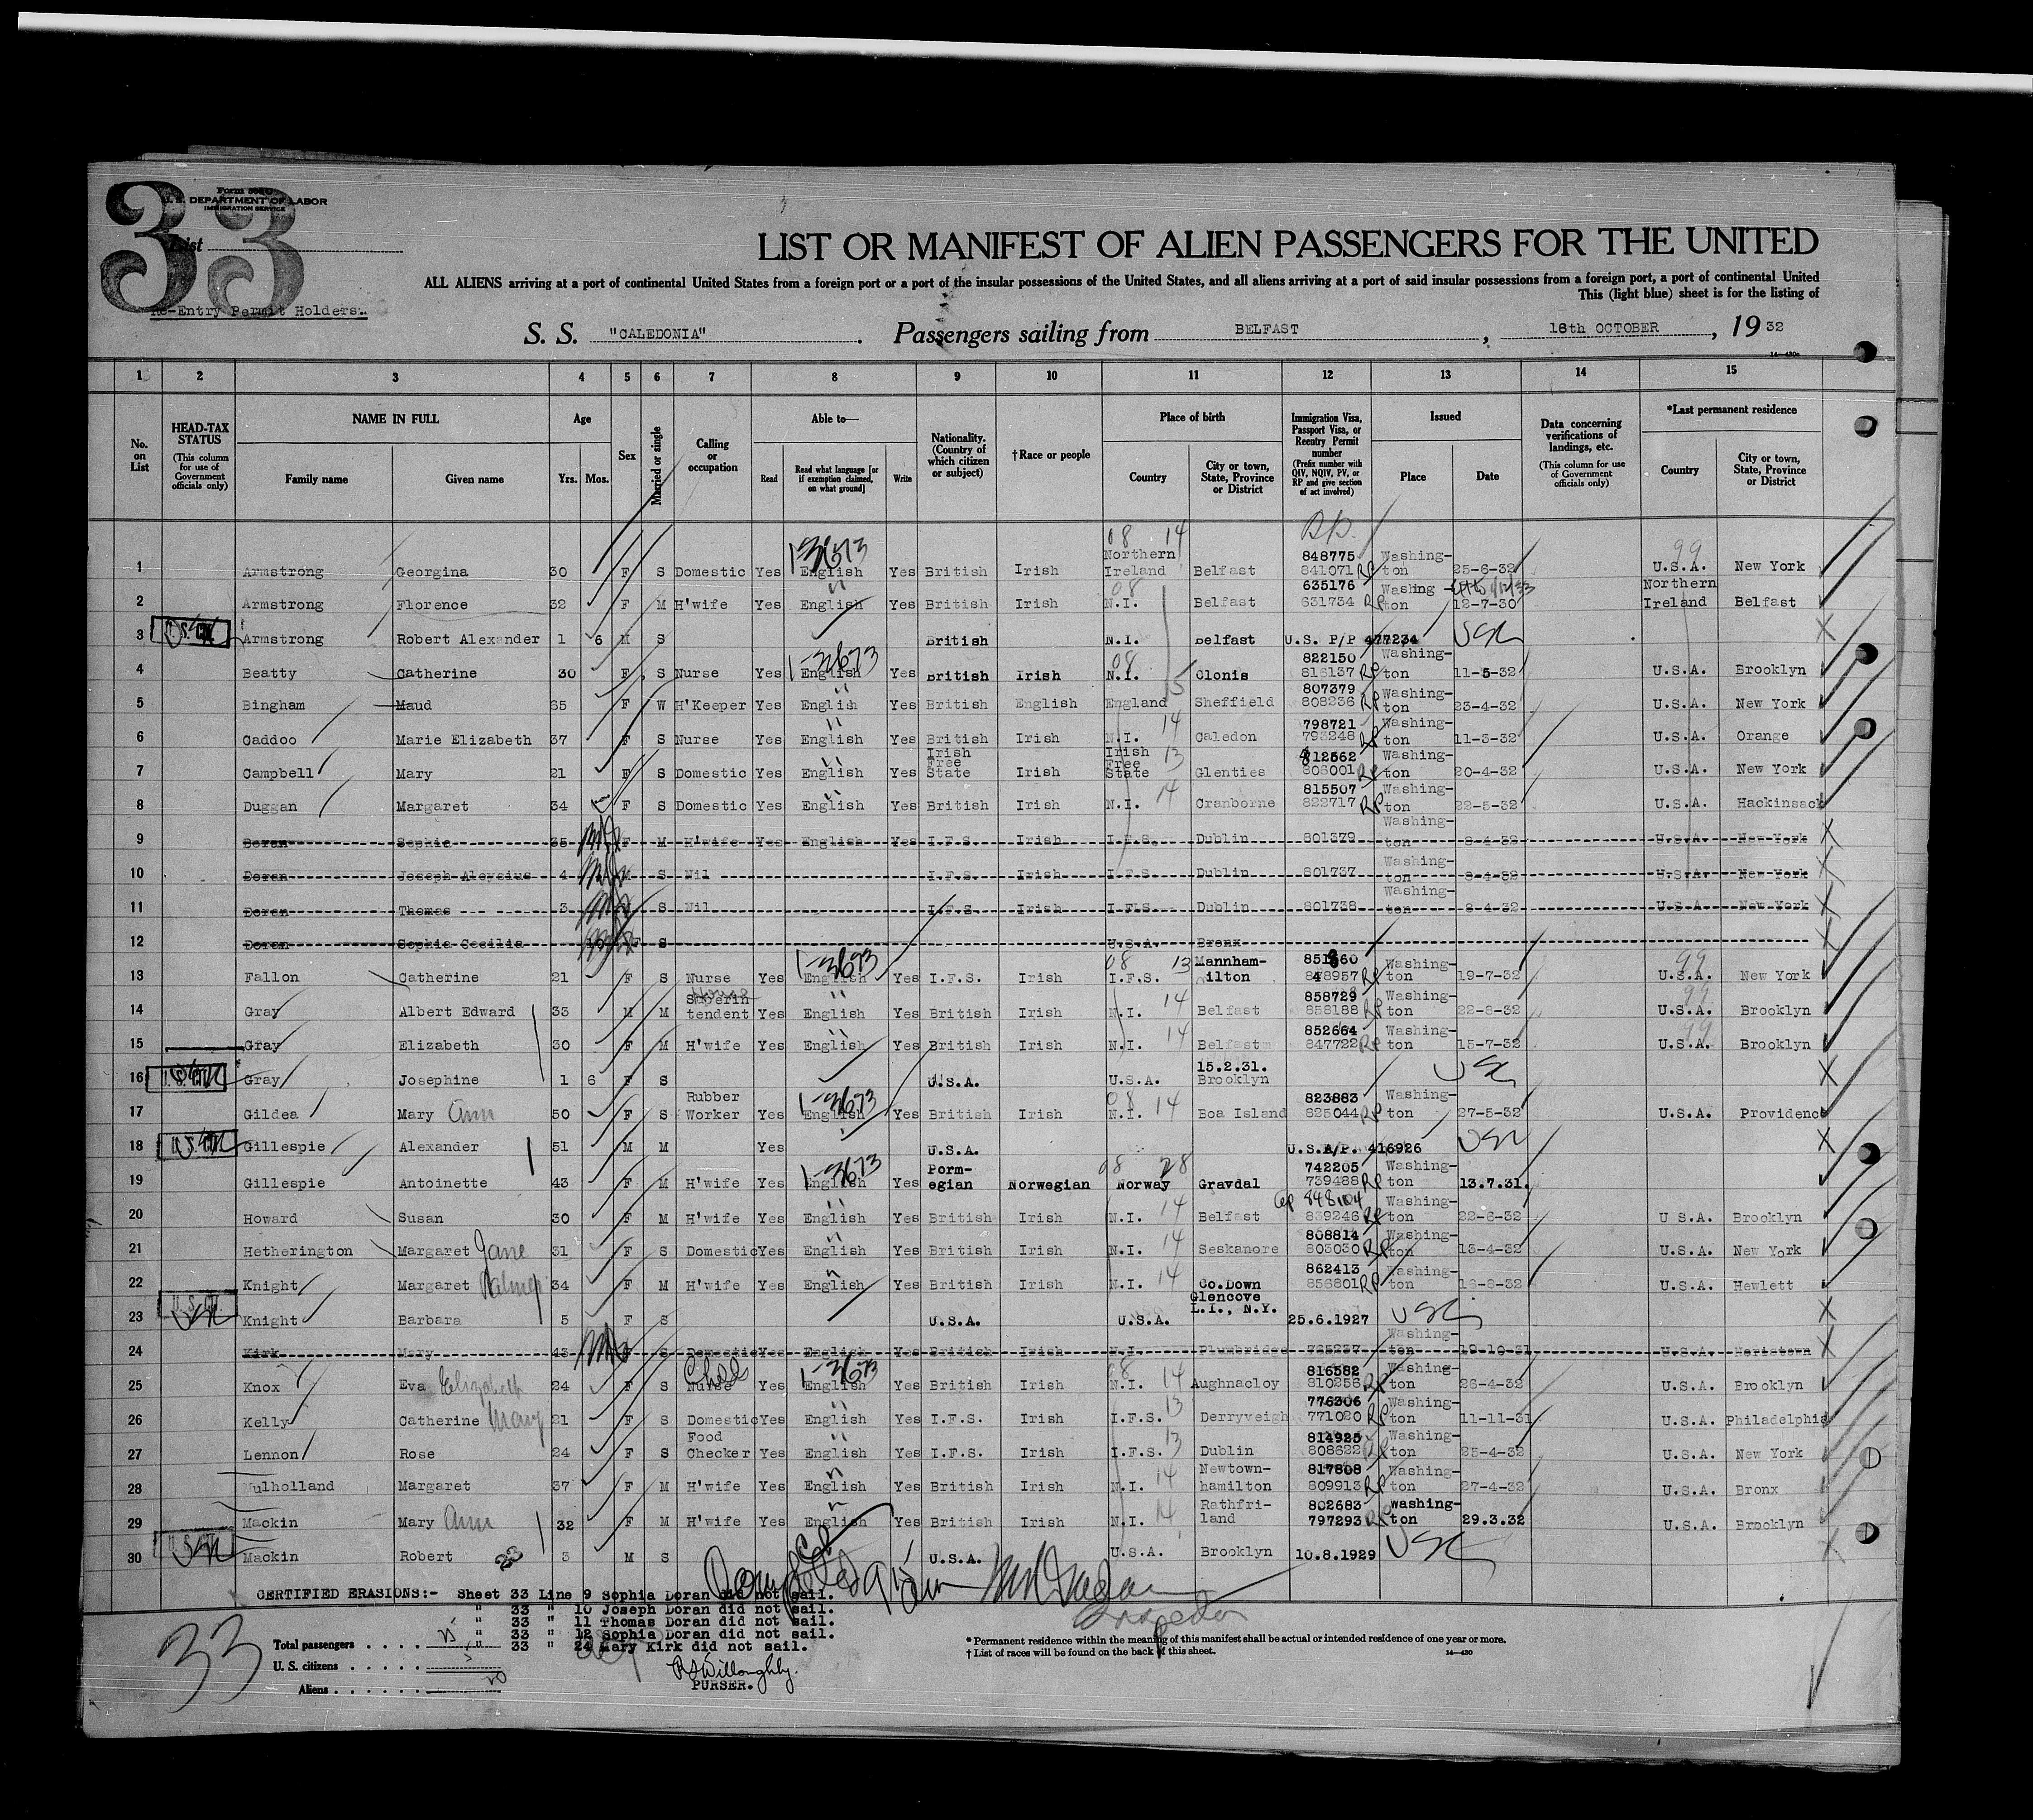 33
Form 500
U. S. DEPARTMENT OF LABOR
IMMIGRATION SERVICE
List
Re-Entry Permit Holders.
LIST OR MANIFEST OF ALIEN PASSENGERS FOR THE UNITED
ALL ALIENS arriving at a port of continental United States from a foreign port or a port of the insular possessions of the United States, and all aliens arriving at a port of said insular possessions from a foreign port, a port of continental United
This (light blue) sheet is for the listing of
S. S. "CALEDONIA". Passengers sailing from BELFAST, 18th OCTOBER, 19 32
1 2 3 4 5 6 7 8 9 10 11 12 13 14 15
No. on List
HEAD-TAX STATUS (This column for use of Government officials only)
NAME IN FULL Family name Given name
Age Yrs. Mos.
Sex
Married or single
Calling or occupation
Able to— Read Read what language [or if exemption claimed, on what ground] Write
Nationality. (Country of which citizen or subject)
†Race or people
Place of birth Country City or town, State, Province or District
Immigration Visa, Passport Visa, or Reentry Permit number (Prefix number with QIV, NQIV, PV, or RP and give section of act involved)
Issued Place Date
Data concerning verifications of landings, etc. (This column for use of Government officials only)
*Last permanent residence Country City or town, State, Province or District
1 Armstrong Georgina 30 F S Domestic Yes English Yes British Irish Northern Ireland Belfast 848775 841071 RP Washington 25-6-32 U.S.A. New York
2 Armstrong Florence 32 F M H'wife Yes English Yes British Irish N.I. Belfast 635176 631734 RP Washington 12-7-30 Northern Ireland Belfast
3 Armstrong Robert Alexander 1 6 M S British N.I. Belfast U.S. P/P 477234 USC
4 Beatty Catherine 30 F S Nurse Yes English Yes British Irish N.I. Clonis 822150 816137 RP Washington 11-5-32 U.S.A. Brooklyn
5 Bingham Maud 65 F W H'Keeper Yes English Yes British English England Sheffield 807379 808236 RP Washington 23-4-32 U.S.A. New York
6 Caddoo Marie Elizabeth 37 F S Nurse Yes English Yes British Irish N.I. Caledon 798721 793248 RP Washington 11-3-32 U.S.A. Orange
7 Campbell Mary 21 F S Domestic Yes English Yes Irish Free State Irish Irish Free State Glenties 812562 806001 RP Washington 20-4-32 U.S.A. New York
8 Duggan Margaret 34 F S Domestic Yes English Yes British Irish N.I. Cranborne 815507 822717 RP Washington 22-5-32 U.S.A. Hackinsack
9 Doran Sophia 35 F M H'wife Yes English Yes I.F.S. Irish I.F.S. Dublin 801379 Washington 8-4-32 U.S.A. New York
10 Doran Joseph Aloysius 4 M S Nil I.F.S. Irish I.F.S. Dublin 801737 Washington 8-4-32 U.S.A. New York
11 Doran Thomas 3 M S Nil I.F.S. Irish I.F.S. Dublin 801738 Washington 8-4-32 U.S.A. New York
12 Doran Sophia Cecilia F S U.S.A. Bronx
13 Fallon Catherine 21 F S Nurse Yes English Yes I.F.S. Irish I.F.S. Mannhamilton 848957 RP Washington 19-7-32 U.S.A. New York
14 Gray Albert Edward 33 M M House Superintendent Yes English Yes British Irish N.I. Belfast 858729 858188 RP Washington 22-8-32 U.S.A. Brooklyn
15 Gray Elizabeth 30 F M H'wife Yes English Yes British Irish N.I. Belfast 852664 847722 RP Washington 15-7-32 U.S.A. Brooklyn
16 Gray Josephine 1 6 F S U.S.A. U.S.A. 15.2.31. Brooklyn USC
17 Gildea Mary Ann 50 F S Rubber Worker Yes English Yes British Irish N.I. Boa Island 823883 825044 RP Washington 27-5-32 U.S.A. Providence
18 Gillespie Alexander 51 M M Yes U.S.A. U.S.A/P. 416926 USC
19 Gillespie Antoinette 43 F M H'wife Yes English Yes Pormegian Norwegian Norway Gravdal 742205 739488 RP Washington 13.7.31. 
20 Howard Susan 30 F M H'wife Yes English Yes British Irish N.I. Belfast 848104 839246 RP Washington 22-6-32 U S.A. Brooklyn
21 Hetherington Margaret Jane 31 F S Domestic Yes English Yes British Irish N.I. Seskanore 808814 803030 RP Washington 13-4-32 U.S.A. New York
22 Knight Margaret 34 F M H'wife Yes English Yes British Irish N.I. Co.Down 862413 856801 RP Washington 16-8-32 U.S.A. Hewlett
23 Knight Barbara 5 F S U.S.A. U.S.A. Glencove L.I., N.Y. 25.6.1927 USC
24 Kirk Mary 43 F S Domestic Yes English Yes British Irish N.I. Plumbridge Washington 19-10-31 U.S.A. Moristown
25 Knox Eva Elizabeth 24 F S Child Nurse Yes English Yes British Irish N.I. Aughnacloy 816582 810256 RP Washington 26-4-32 U.S.A. Brooklyn
26 Kelly Catherine Mary 21 F S Domestic Yes English Yes I.F.S. Irish I.F.S. Derryveigh 776306 771020 RP Washington 11-11-31 U.S.A. Philadelphia
27 Lennon Rose 24 F S Food Checker Yes English Yes I.F.S. Irish I.F.S. Dublin 814925 808622 RP Washington 25-4-32 U.S.A. New York
28 Mulholland Margaret 37 F M H'wife Yes English Yes British Irish N.I. Newtownhamilton 817808 809913 RP Washington 27-4-32 U.S.A. Bronx
29 Mackin Mary Ann 32 F M H'wife Yes English Yes British Irish N.I. Rathfriland 802683 797293 RP Washington 29.3.32 U.S.A. Brooklyn
30 Mackin Robert 3 M S U.S.A. U.S.A. Brooklyn 10.8.1929 USC
CERTIFIED ERASIONS:- Sheet 33 Line 9 Sophia Doran did not sail.
" 33 " 10 Joseph Doran did not sail.
" 33 " 11 Thomas Doran did not sail.
" 33 " 12 Sophia Doran did not sail.
" 33 " 24 Mary Kirk did not sail.
33
Total passengers
U. S. citizens
Aliens
Willoughby.
PURSER.
Inspector
* Permanent residence within the meaning of this manifest shall be actual or intended residence of one year or more.
† List of races will be found on the back of this sheet.
14—430